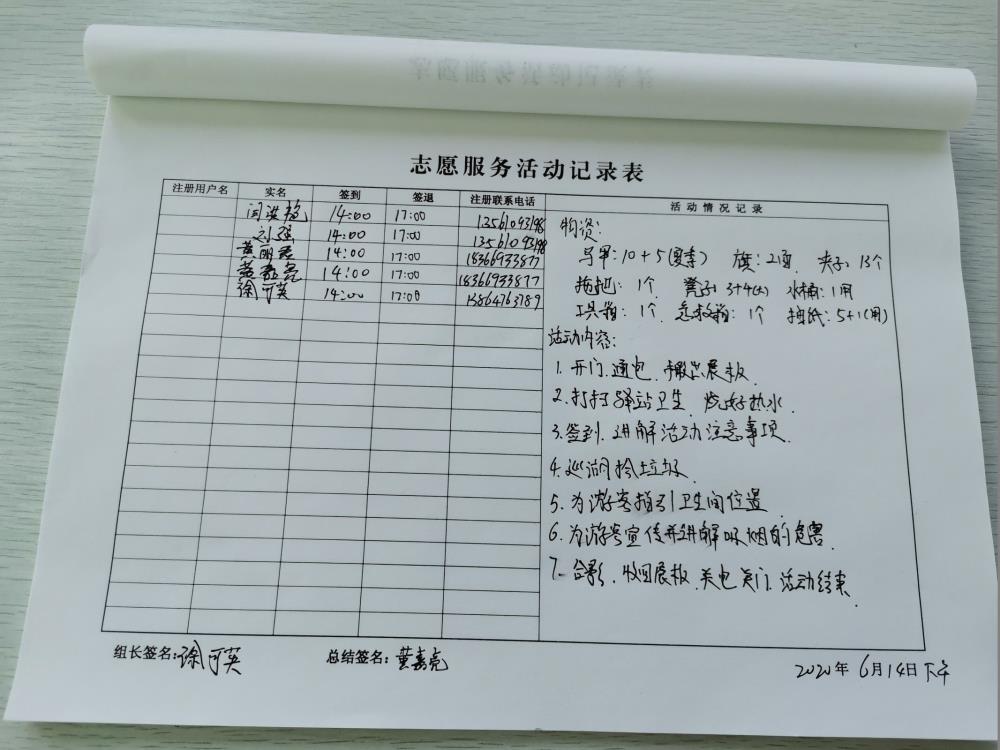 志愿服务活动记录表
注册用户名 实名 签到 签退 注册联系电话 活动情况记录
闫洪艳 14:00 17:00 13561093198
刘强 14:00 17:00 13561093198
黄丽 14:00 17:00 18366933877
黄嘉亮 14:00 17:00 18366933877
徐可英 14:00 17:00 13864763789
物资:
马甲:10+5(夏季) 旗:2面 夹子 13个
拖把:1个 凳子 3+4(大) 水桶:1用
工具箱:1个 急救箱:1个 抽纸:5+1(用)
活动内容:
1. 开门.通电. 展板.
2. 打扫驿站卫生 烧好热水.
3. 签到.讲解活动注意事项.
4. 巡湖捡垃圾
5. 为游客指引卫生间位置
6. 为游客宣传并讲解吸烟的危害.
7. 合影.收回展板.关电关门.活动结束.
组长签名:徐可英 总结签名:黄嘉亮
2020年 6月14日下午